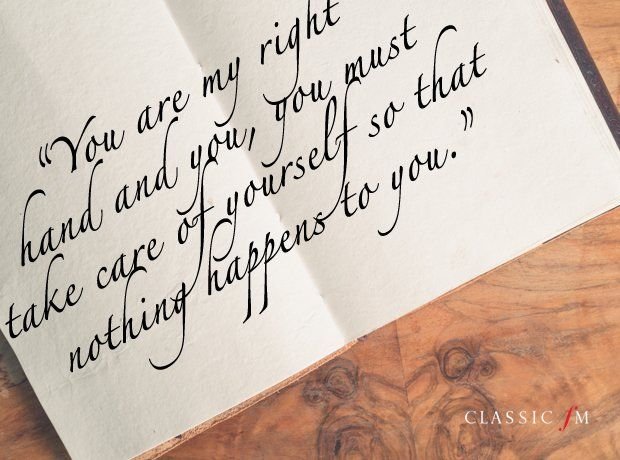 “You are my right
hand and you, you must
take care of yourself so that
nothing happens to you.”
CLASSIC fM